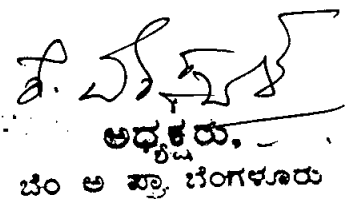 ಅಧ್ಯಕ್ಷರು,
ಬೆಂ ಅ ಪ್ರಾ ಬೆಂಗಳೂರು